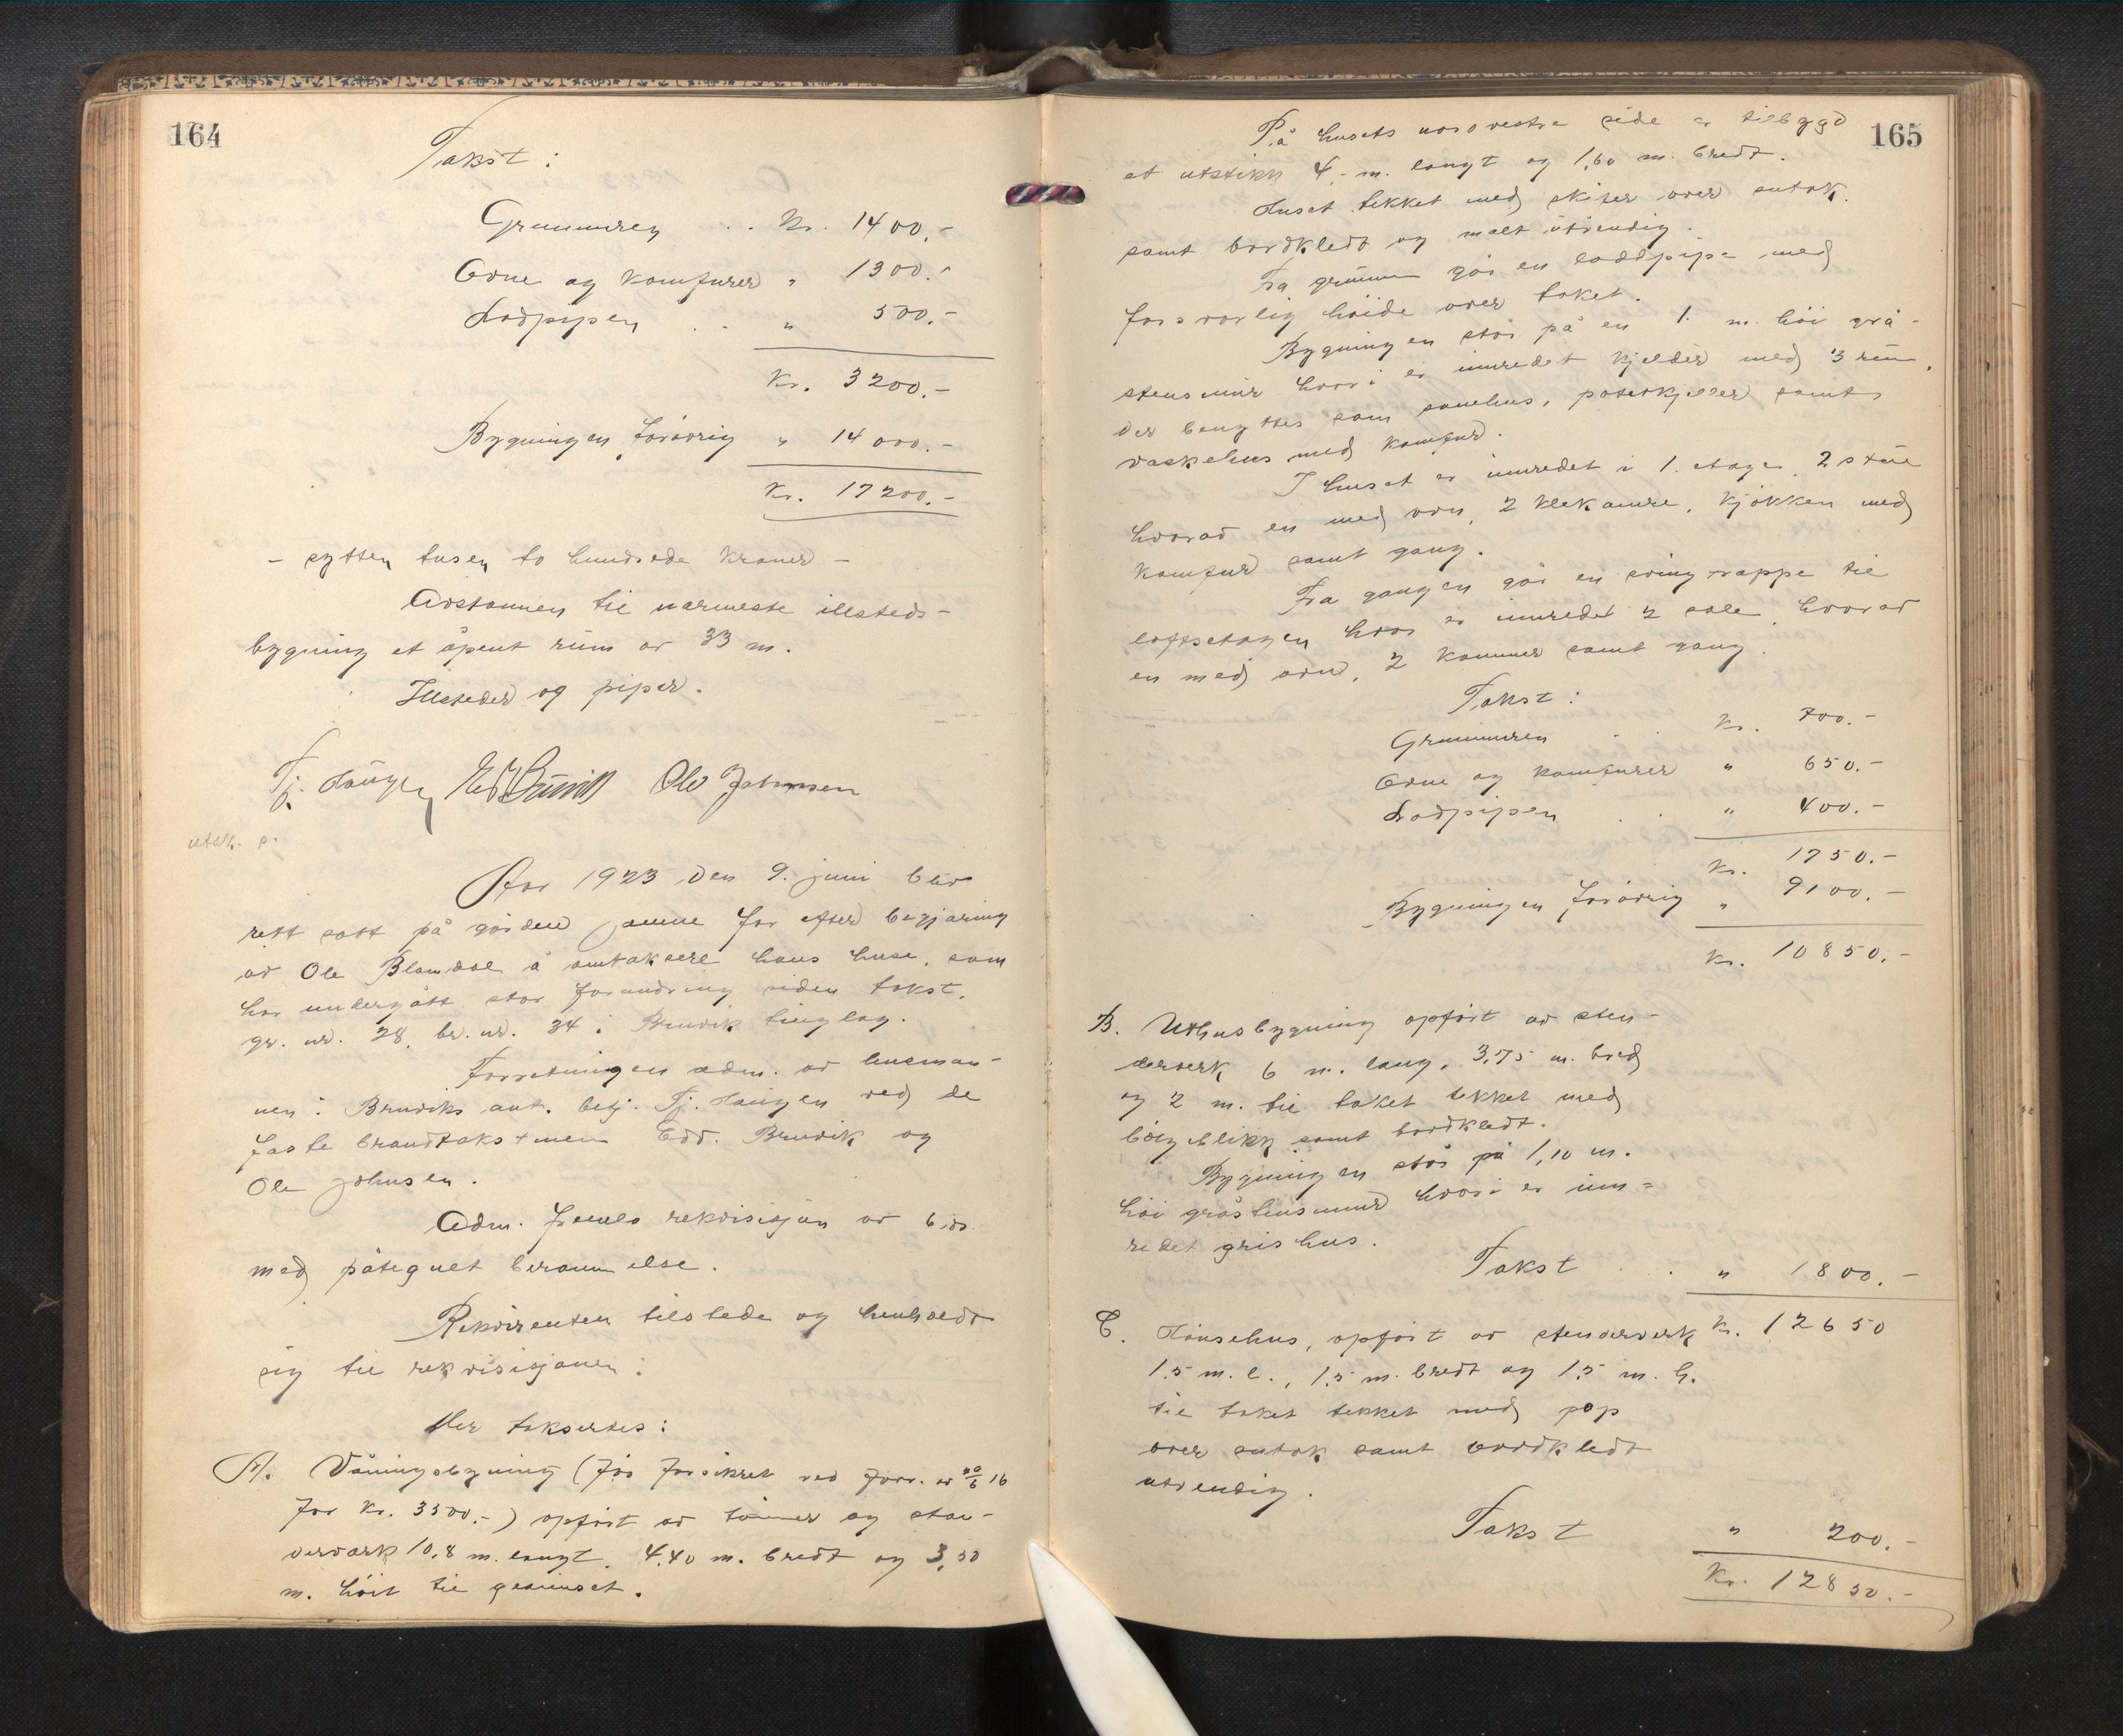 164
Takst:
Grunmuren . . Kr. 1400.-
Ovne og komfurer " 1300.-
Lodpipen . . " 500.-
Kr. 3200.-
Bygningen forøvrig " 14000.-
Kr. 17200.-
- sytten tusen to hundrede kroner -
Avstannen til nærmeste illsteds-
bygning et åpent rum av 33 m.
Illsteder og piper.
Tj. Haugen Ed. Bruvik Ole Johnsen
utsk. s.
År 1923 den 9. juni blev
rett satt på gården Jamne for efter begjæring
av Ole Blomdal å omtaksere hans huse, som
har undergått stor forandring siden takst,
gr. nr. 28, br. nr. 34 i Bruvik tinglag.
Forretningen adm. av lensman-
nen i Bruviks aut. betj. Tj. Haugen ved de
faste brandtakstmenn Edv. Bruvik og
Ole Johnsen.
Adm. fremla rekvisisjon av b.ds.
med påtegnet berammelse.
Rekvirenten tilstede og henholdt
sig til rekvisisjonen:
Her takseres:
A. Våningsbygning (før forsikret ved forr. av 20/6 16
for kr. 3500.-) opført av tømmer og sten-
derværk 10,8 m. langt, 4,40 m. bredt og 3,50
m. høit til gesimset.
165
På husets nordvestre side er tilbygd
et utstikk 4,- m. langt og 1,60 m. bredt.
Huset tekket med skifer over sutak
samt bordkledt og malt utvendig.
Fra grunnen går en loddpipe med
forsvarlig høide over taket.
Bygningen står på en 1. m. høi grå-
stensmur hvori er innredet kjelder med 3 rum,
der benyttes som
potetkjeller samt
vaskehus med komfur.
I huset er innredet i 1. etage 2 stue
hvorav en med ovn, 2 klekamre, kjøkken med
komfur samt gang.
Fra gangen går en svingtrappe til
loftsetagen hvor er innredet 2 sale, hvorav
en med ovn, 2 kammer samt gang.
Takst:
Grunmuren . . Kr. 700.-
Ovne og komfurer " 650.-
Lodpipen . . " 400.-
Kr. 1750.-
Bygningen forøvrig " 9100.-
Kr. 10850.-
B. Uthusbygning opført av sten-
derverk 6 m. lang, 3,75 m. bred
og 2 m. til taket tekket med
bølgeblikk samt bordkledt.
Bygningen står på 1,10 m.
høi gråstensmur hvori er inn-
redet grishus.
Takst . . " 1800.-
Kr. 12650
C. Hønsehus, opført av stenderverk
1,5 m. l., 1,5 m. bredt og 1,5 m. h.
til taket tekket med pap
over sutak samt bordkledt
utvendig.
Takst " 200.-
Kr. 12850.-